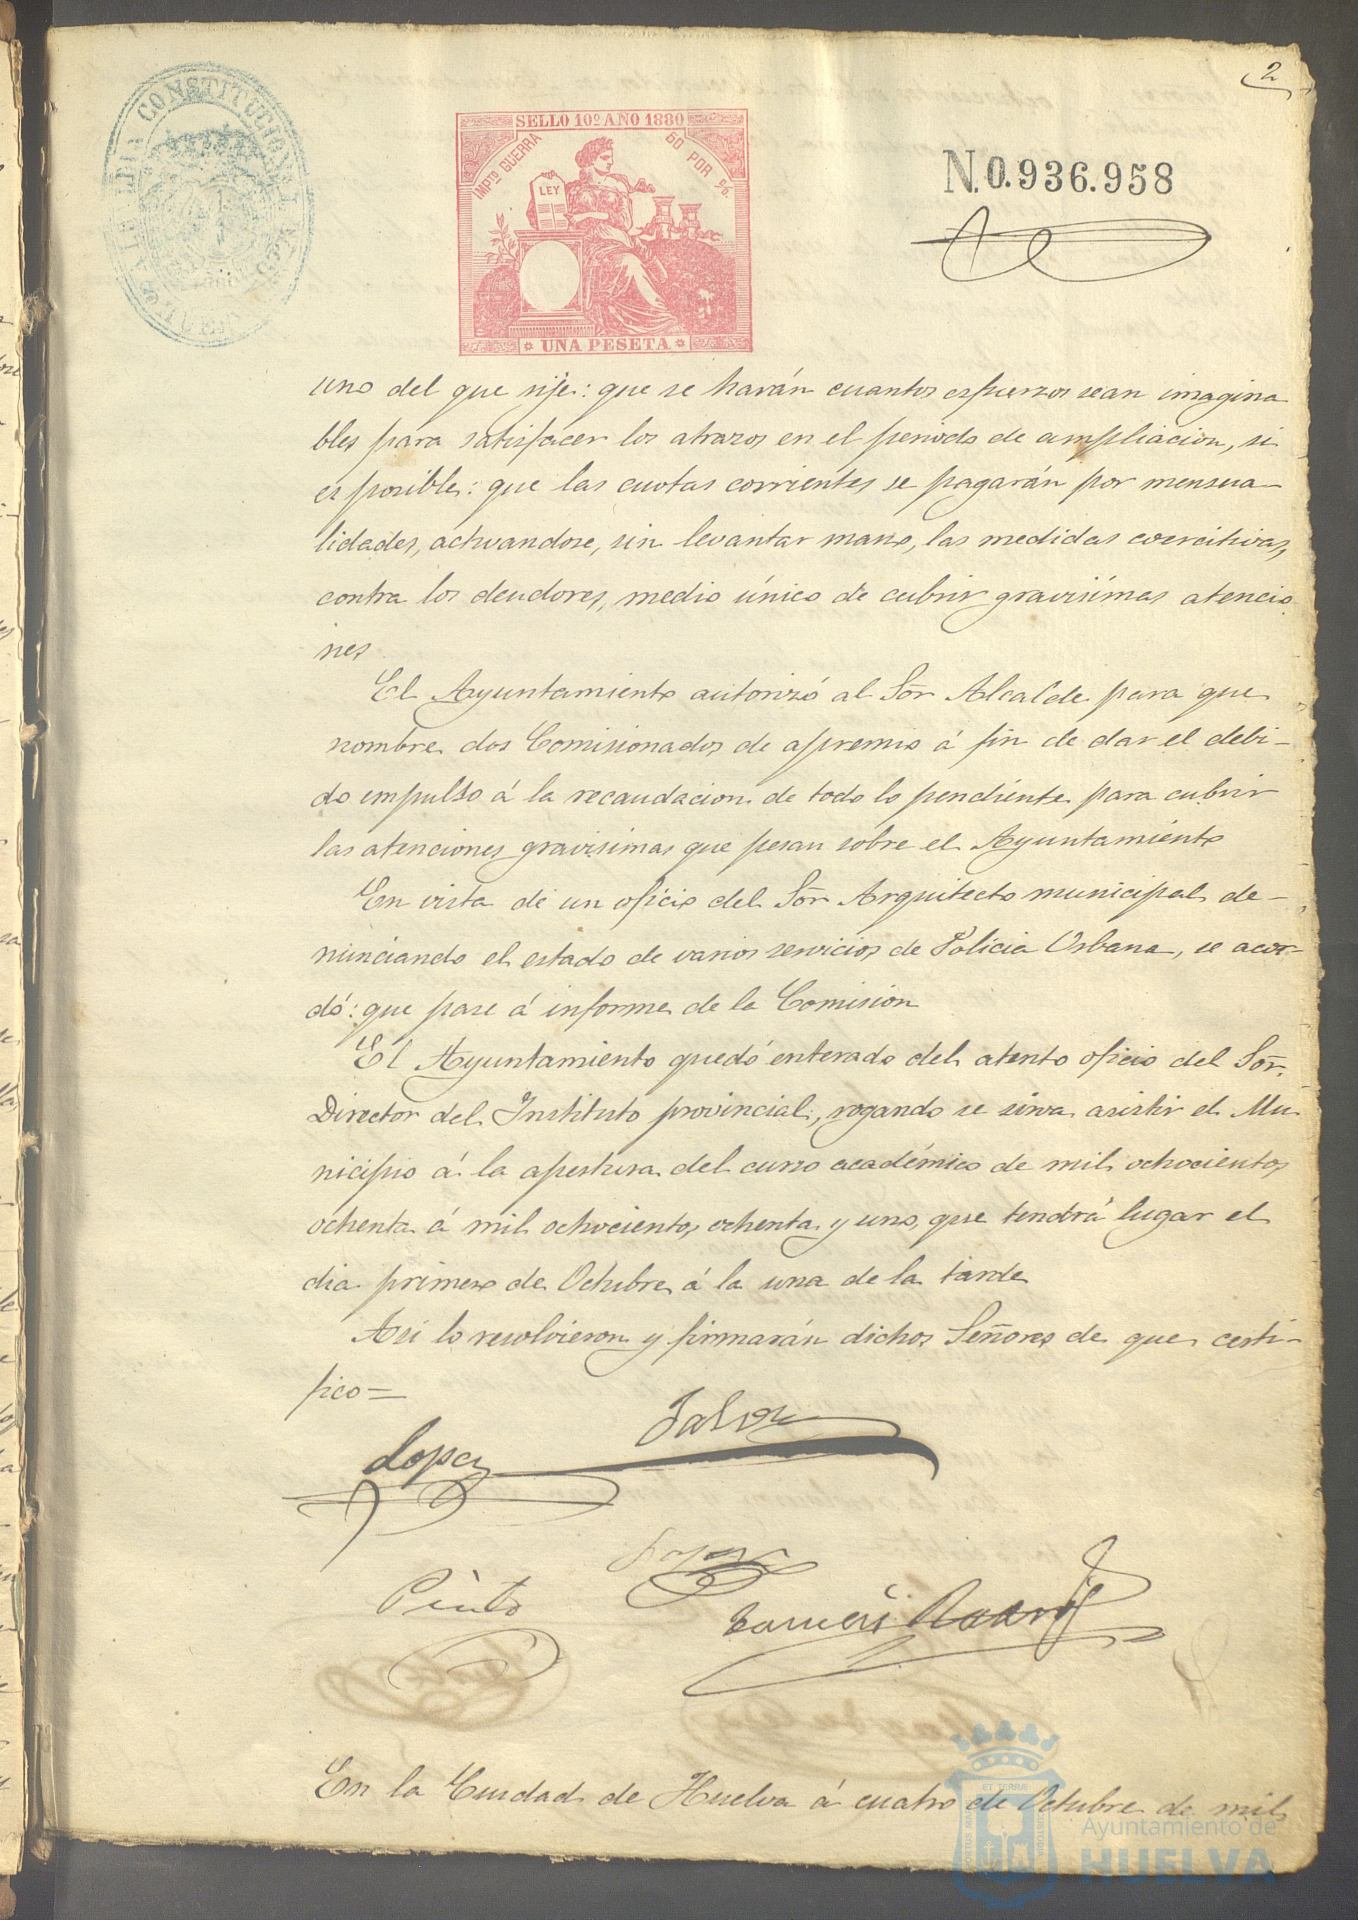 2
ALCALDIA CONSTITUCIONAL DE HUELVA
SELLO 10º AÑO 1880
IMPTO GUERRA 60 POR %
LEY
UNA PESETA
N.0.936.958
uno del que rije: que se harán cuantos esfuerzos sean imagina
bles para satisfacer los atrazos en el periodo de ampliacion, si
es posible: que las cuotas corrientes se pagarán por mensua-
lidades, activandose, sin levantar mano, las medidas coercitivas,
contra los deudores, medio único de cubrir gravisimas atencio
nes
El Ayuntamiento autorizó al Sor Alcalde para que
nombre dos Comisionados de apremio á fin de dar el debi-
do impulso á la recaudacion de todo lo pendiente para cubrir
las atenciones gravisimas que pesan sobre el Ayuntamiento
En vista de un oficio del Sor Arquitecto municipal de-
nunciando el estado de varios servicios de Policia Urbana, se acor-
dó: que pase á informe de la Comision
El Ayuntamiento quedó enterado del atento oficio del Sor.
Director del Instituto provincial, rogando se sirva asistir el Mu-
nicipio á la apertura del curso académico de mil ochocientos
ochenta á mil ochocientos ochenta y uno, que tendrá lugar el
dia primero de Octubre á la una de la tarde
Asi lo resolvieron y firmarán dichos Señores de que certi-
fico=
Lopez
Pinto
En la Ciudad de Huelva á cuatro de Octubre de mil
Ayuntamiento de
HUELVA